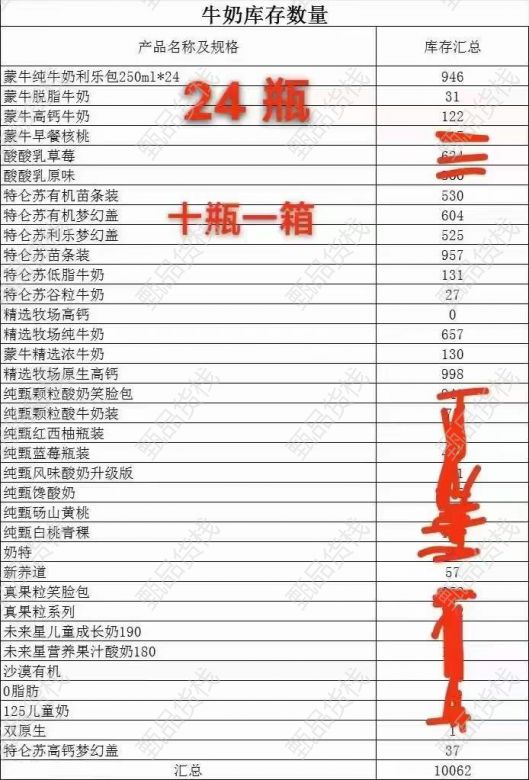 牛奶库存数量
产品名称及规格 库存汇总
蒙牛纯牛奶利乐包250ml*24 946
24 瓶
蒙牛脱脂牛奶 31
蒙牛高钙牛奶 122
蒙牛早餐核桃
酸酸乳草莓
酸酸乳原味
特仑苏有机苗条装 530
十瓶一箱
特仑苏有机梦幻盖 604
特仑苏利乐梦幻盖 525
特仑苏苗条装 957
特仑苏低脂牛奶 131
特仑苏谷粒牛奶 27
精选牧场高钙 0
精选牧场纯牛奶 657
蒙牛精选浓牛奶 130
精选牧场原生高钙 998
纯甄颗粒酸奶笑脸包
纯甄颗粒酸牛奶装
纯甄红西柚瓶装
纯甄蓝莓瓶装
纯甄风味酸奶升级版
纯甄馋酸奶
纯甄砀山黄桃
纯甄白桃青稞
奶特
新养道 57
真果粒笑脸包
真果粒系列
未来星儿童成长奶190
未来星营养果汁酸奶180
沙漠有机
0脂肪
125儿童奶
双原生 1
特仑苏高钙梦幻盖 37
汇总 10062
甄品货栈